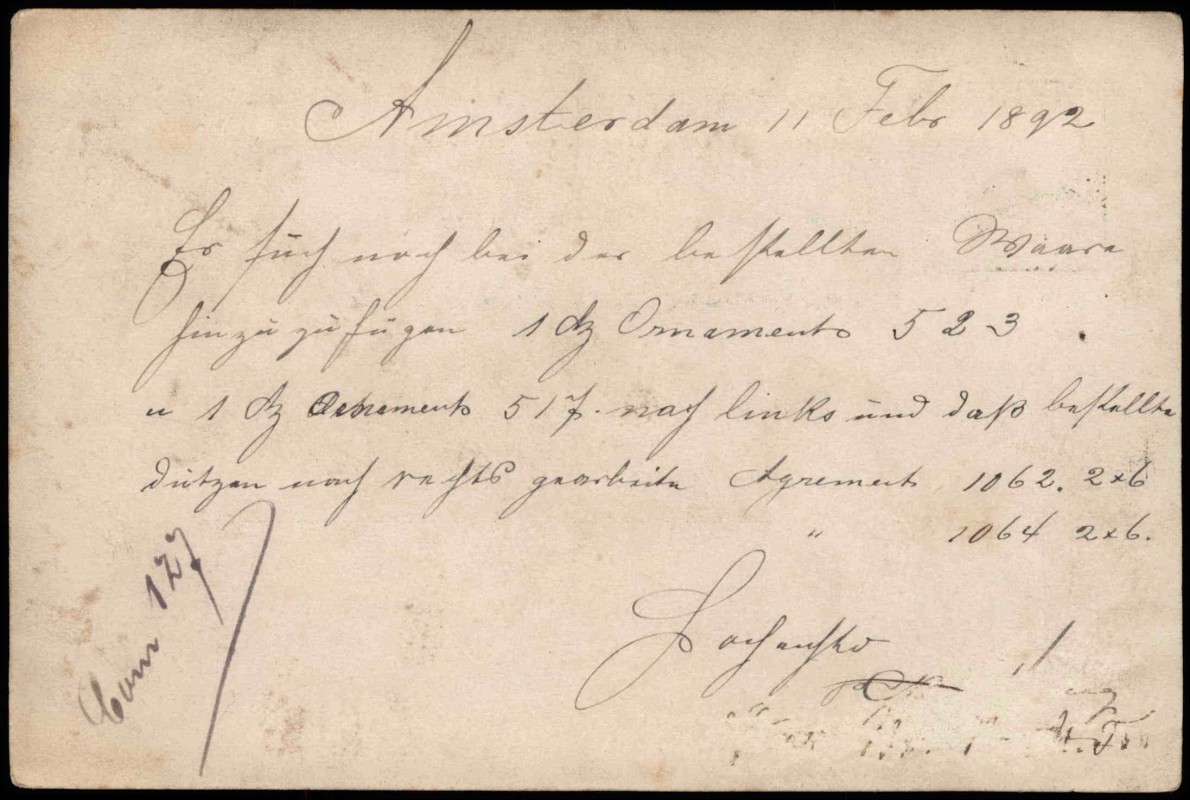 Amsterdam 11 Febr 1892
Er such noch bei der bestellten Waare
hinzu zu fügen 1 dz Ornaments 523
u 1 dz Ornaments 517. nach links und daß bestellte
dutzen nach rechts gearbeite Agrements 1062. 2x6
" 1064 2x6.
Com 127